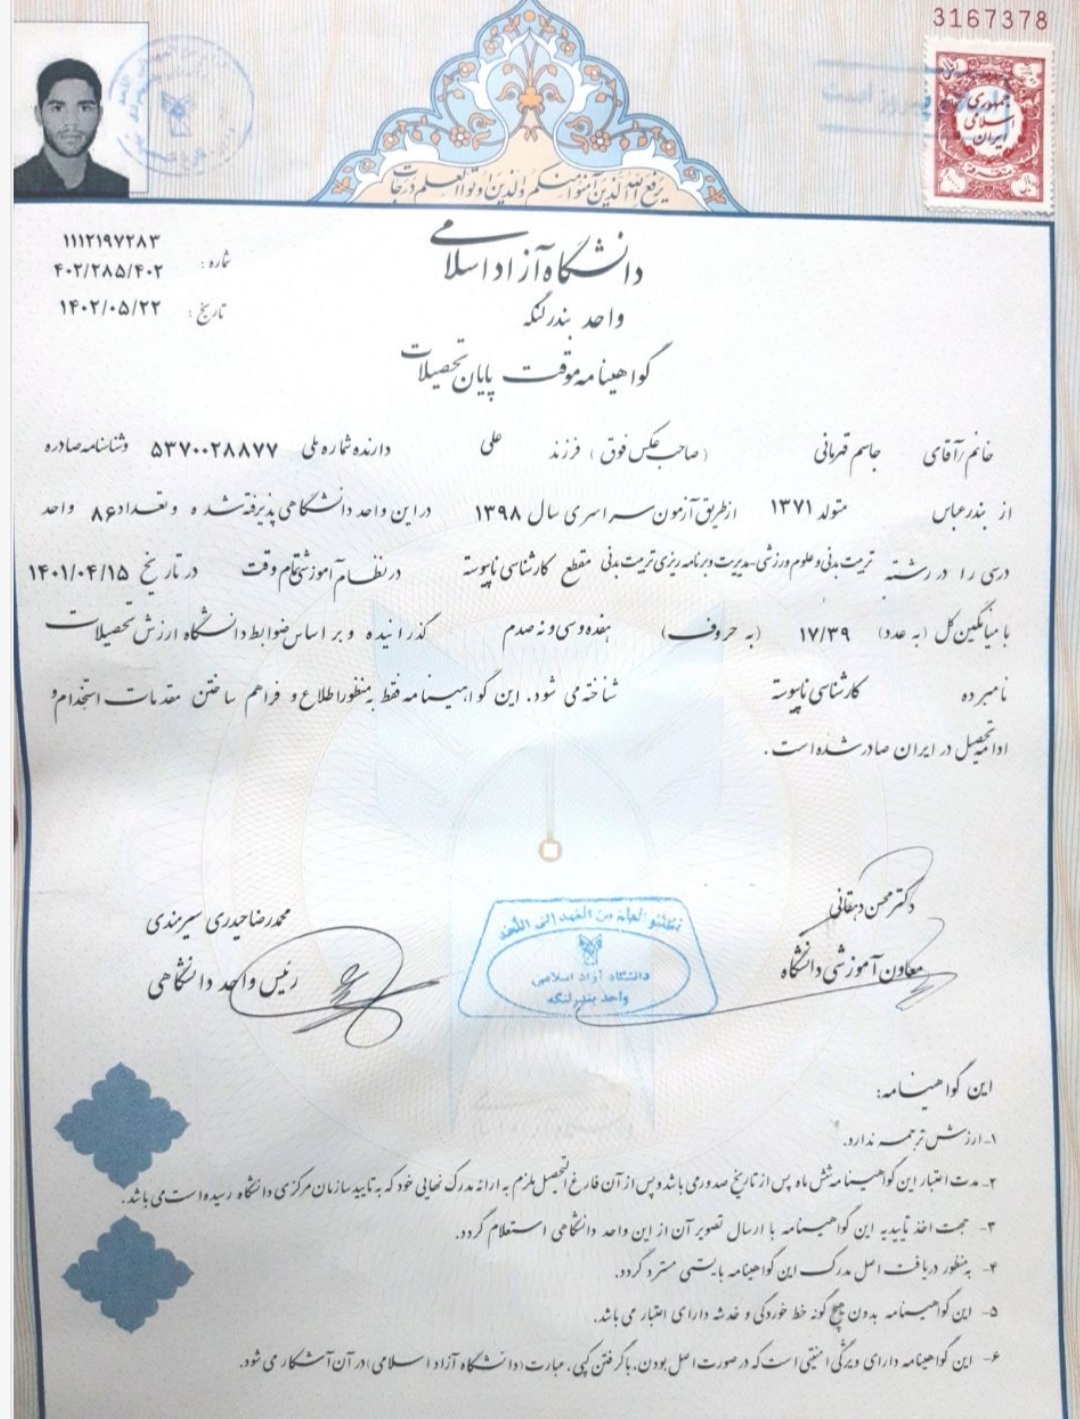 3167378
جمهوری
اسلامی
ایران
یرفع الله الذین آمنوا منکم والذین اوتوا العلم درجات
شماره: ۱۱۱۲۱۹۷۲۸۳
۴۰۲/۲۸۵/۴۰۲
تاریخ: ۱۴۰۲/۰۵/۲۲
دانشگاه آزاد اسلامی
واحد بندرلنگه
گواهینامه موقت پایان تحصیلات
خانم/آقای جاسم قهرمانی (صاحب عکس فوق) فرزند علی دارنده شماره ملی ۵۳۷۰۰۲۸۸۷۷ وشناسنامه صادره
از بندرعباس متولد ۱۳۷۱ از طریق آزمون سراسری سال ۱۳۹۸ در این واحد دانشگاهی پذیرفته شده و تعداد ۸۶ واحد
درسی را در رشته تربیت بدنی و علوم ورزشی-مدیریت و برنامه ریزی تربیت بدنی مقطع کارشناسی ناپیوسته در نظام آموزشی تمام وقت در تاریخ ۱۴۰۱/۰۴/۱۵
با میانگین کل (به عدد) ۱۷/۳۹ (به حروف) هفده و سی و نه صدم گذرانیده و بر اساس ضوابط دانشگاه ارزش تحصیلات
نامبرده کارشناسی ناپیوسته شناخته می شود. این گواهینامه فقط به منظور اطلاع و فراهم ساختن مقدمات استخدام و
ادامه تحصیل در ایران صادر شده است.
دکتر محسن دهقانی
معاون آموزشی دانشگاه
محمدرضا حیدری سیرمندی
رئیس واحد دانشگاهی
دانشگاه آزاد اسلامی
واحد بندرلنگه
این گواهینامه:
۱- ارزش ترجمه ندارد.
۲- مدت اعتبار این گواهینامه شش ماه پس از تاریخ صدور می باشد و پس از آن فارغ التحصیل ملزم به ارائه مدرک نهایی خود که به تایید سازمان مرکزی دانشگاه رسیده است می باشد.
۳- جهت اخذ تاییدیه این گواهینامه با ارسال تصویر آن از این واحد دانشگاهی استعلام گردد.
۴- به منظور دریافت اصل مدرک این گواهینامه بایستی مسترد گردد.
۵- این گواهینامه بدون هیچ گونه خط خوردگی و خدشه دارای اعتبار می باشد.
۶- این گواهینامه دارای ویژگی امنیتی است که در صورت اصل بودن، با گرفتن کپی، عبارت (دانشگاه آزاد اسلامی) در آن آشکار می شود.